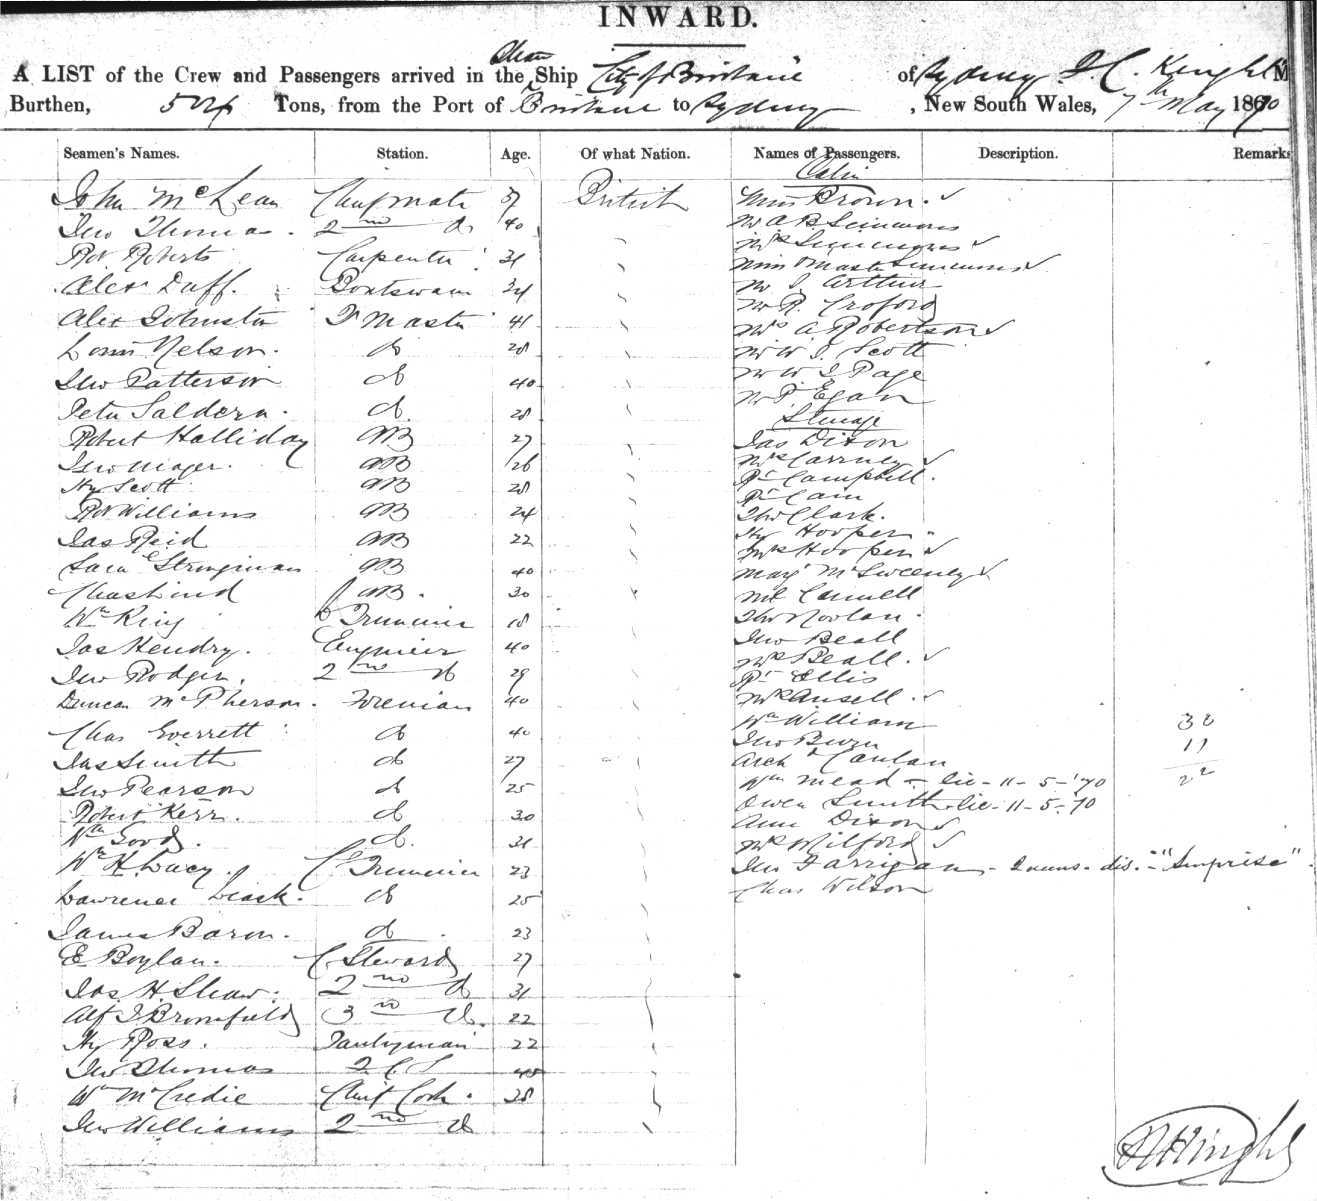 INWARD.
Steam
A LIST of the Crew and Passengers arrived in the Ship City of Brisbane of Sydney Knight M
Burthen, 504 Tons, from the Port of Brisbane to Sydney, New South Wales, 7th May 1870
Seamen's Names. Station. Age. Of what Nation. Names of Passengers. Description. Remarks
Cabin
John McLean Chief mate 37 British Miss Brown
Jno Thomas 2nd do 40 Mr A B Simmons
Mrs Simmons
Robt Roberts Carpenter 31 Miss & Master Simmons
Alex Duff Boatswain 34 Mr J Arthur
Mr R. Croford
Alex Johnston Q Master 41 Mrs A Robertson
Louis Nelson do 28 Mr W J Scott
Mr W J Page
Jno Patterson do 40 Mr P. Egan
Peter Saldern do 28 Steerage
Robert Halliday AB 27 Jas Dixon
Jno AB 26 Mrs Carrney
Hy Scott AB 28 Campbell
Cain
Robt Williams AB 24 Thos Clark
Hy Hooper
Jas Reid AB 22 Mrs Hooper
AB 40 Mary McSweeney
Chas Lind AB 30
Wm King Trimmer 18 Thos Nowlan
Jas Hendry Engineer 40 Jno Beall
Mrs Beall
Jno Rodger 2nd do 29 Ellis
Duncan McPherson Fireman 40 Mrs Ansell
Chas Everrett do 40 Wm William
Jno
Jas Smith do 27 Archd
Wm Mead - lic - 11 - 5 - '70
Jno Pearson do 25 Owen Smith - lic - 11 - 5 - 70
Robert Kerr do 30 Ann Dixon
Wm Good do 31 Mrs Milford
Wm H. Lucy Trimmer 23 Jno Farrigan - dis. - "Surprise"
Lawrence Leask do 25 Chas Wilson
James Baron do 23
E Boylan C Steward 27
Jas. H. Shaw 2nd do 31
Alf J Bromfield 3rd do 22
Hy Ross Pantryman 22
Jno Thomas 40
Wm McCredie Chief Cook 28
Jno Williams 2nd do
Knight